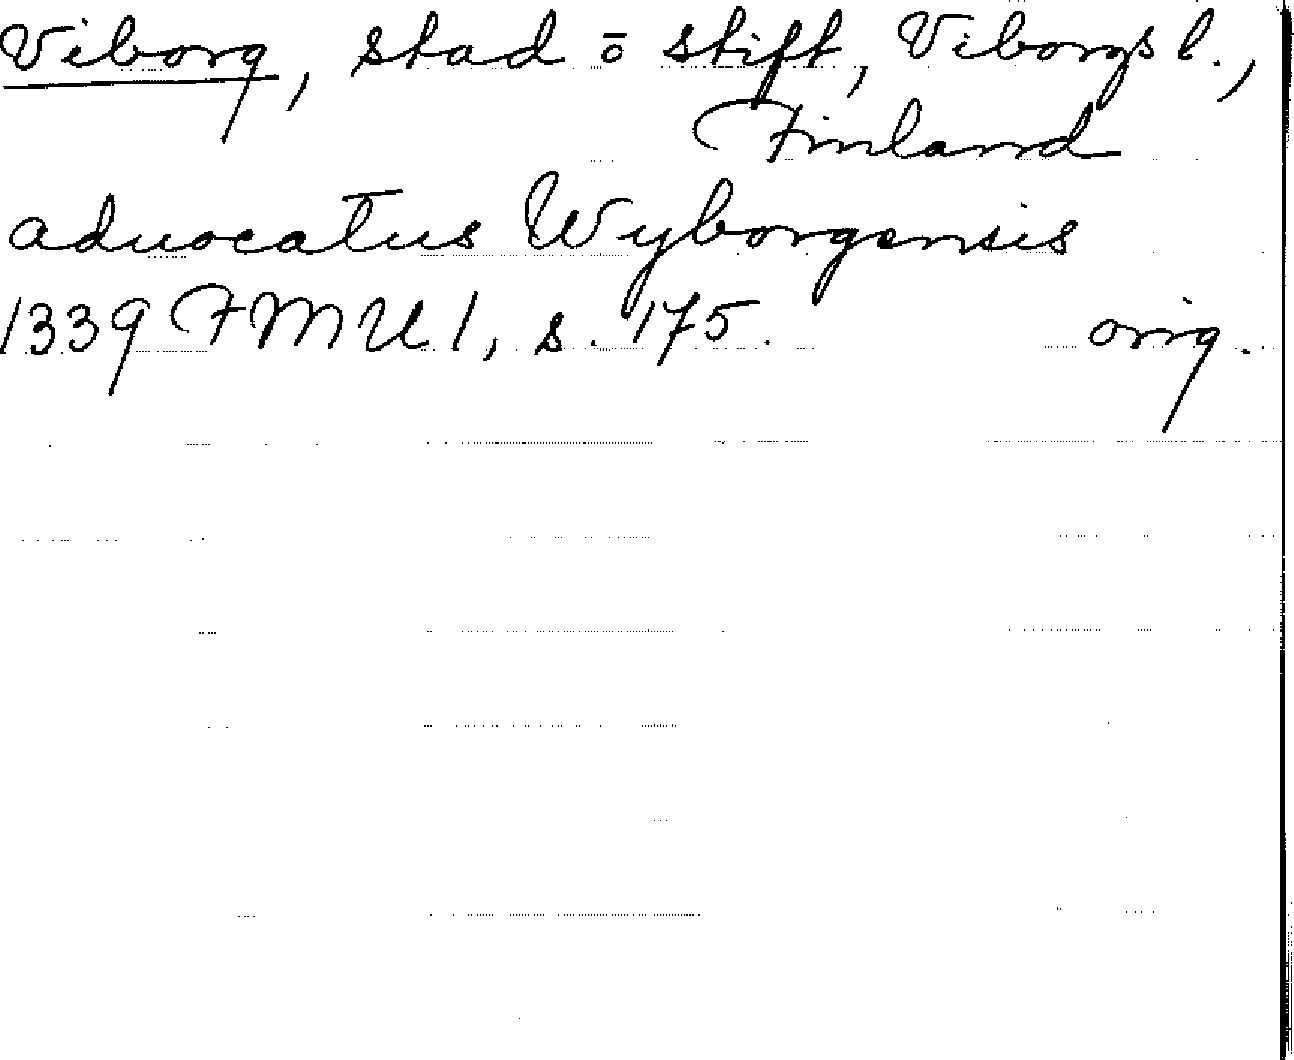 Viborg, stad o stift, Viborgs l.,
Finland
aduocatus Wyborgensis
1339 FMU 1, s. 175. orig.